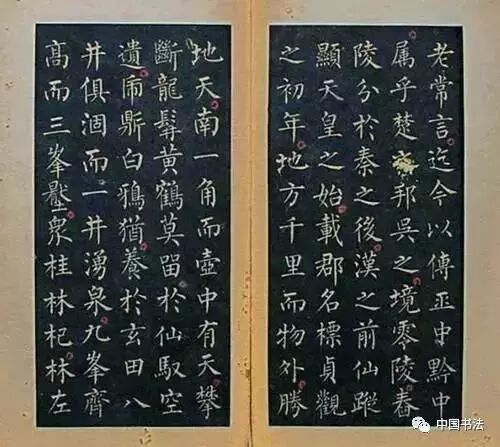 老常言迄今以傳巫中黔中
属乎楚之邦吳之境零陵舂
陵分於秦之後漢之前仙蹤
顯天皇之始載郡名標貞觀
之初年地方千里而物外勝
地天南一角而壺中有天攀
斷龍髯黃鶴莫留於仙馭空
遺鼎白鴉猶養於玄田八
井俱涸而一井湧泉九峯齊
高而三峯壓衆桂林杞林左
中国书法